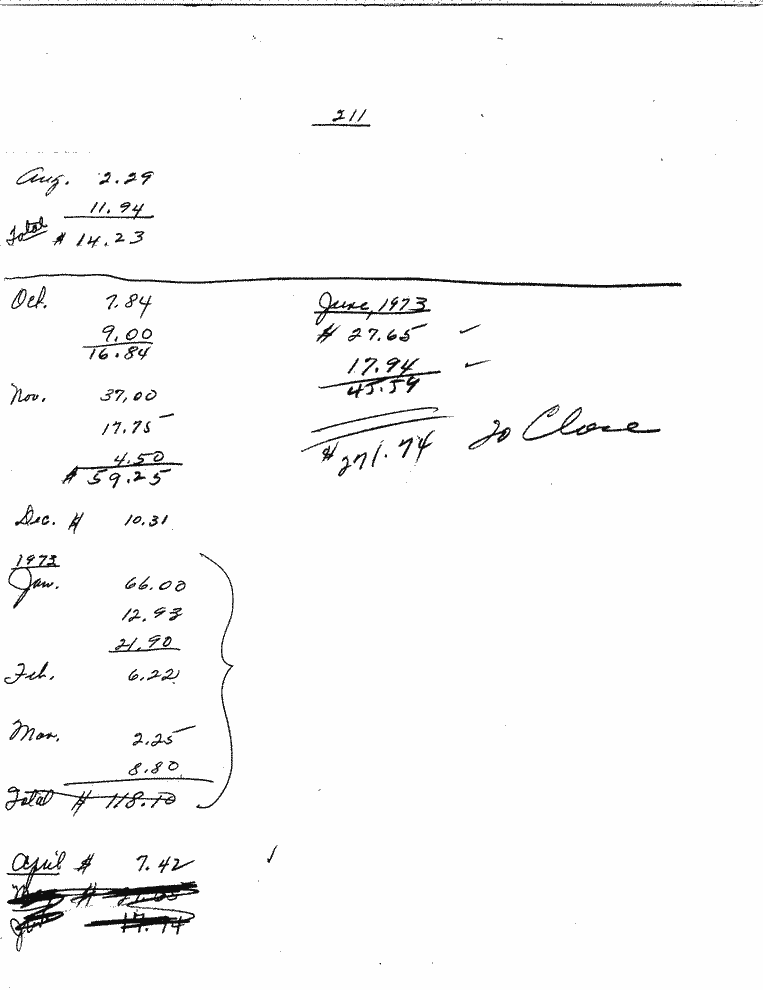 211
Aug. 2.29
11.94
Total $ 14.23
Oct. 7.84
9.00
16.84
Nov. 37.00
17.75
4.50
$ 59.25
Dec. $ 10.31
1973
Jan. 66.00
12.93
21.90
Feb. 6.22
Mar. 2.25
8.80
Total $ 118.10
April $ 7.42
17.94
June, 1973
$ 27.65
17.94
45.59
$271.74 To Close